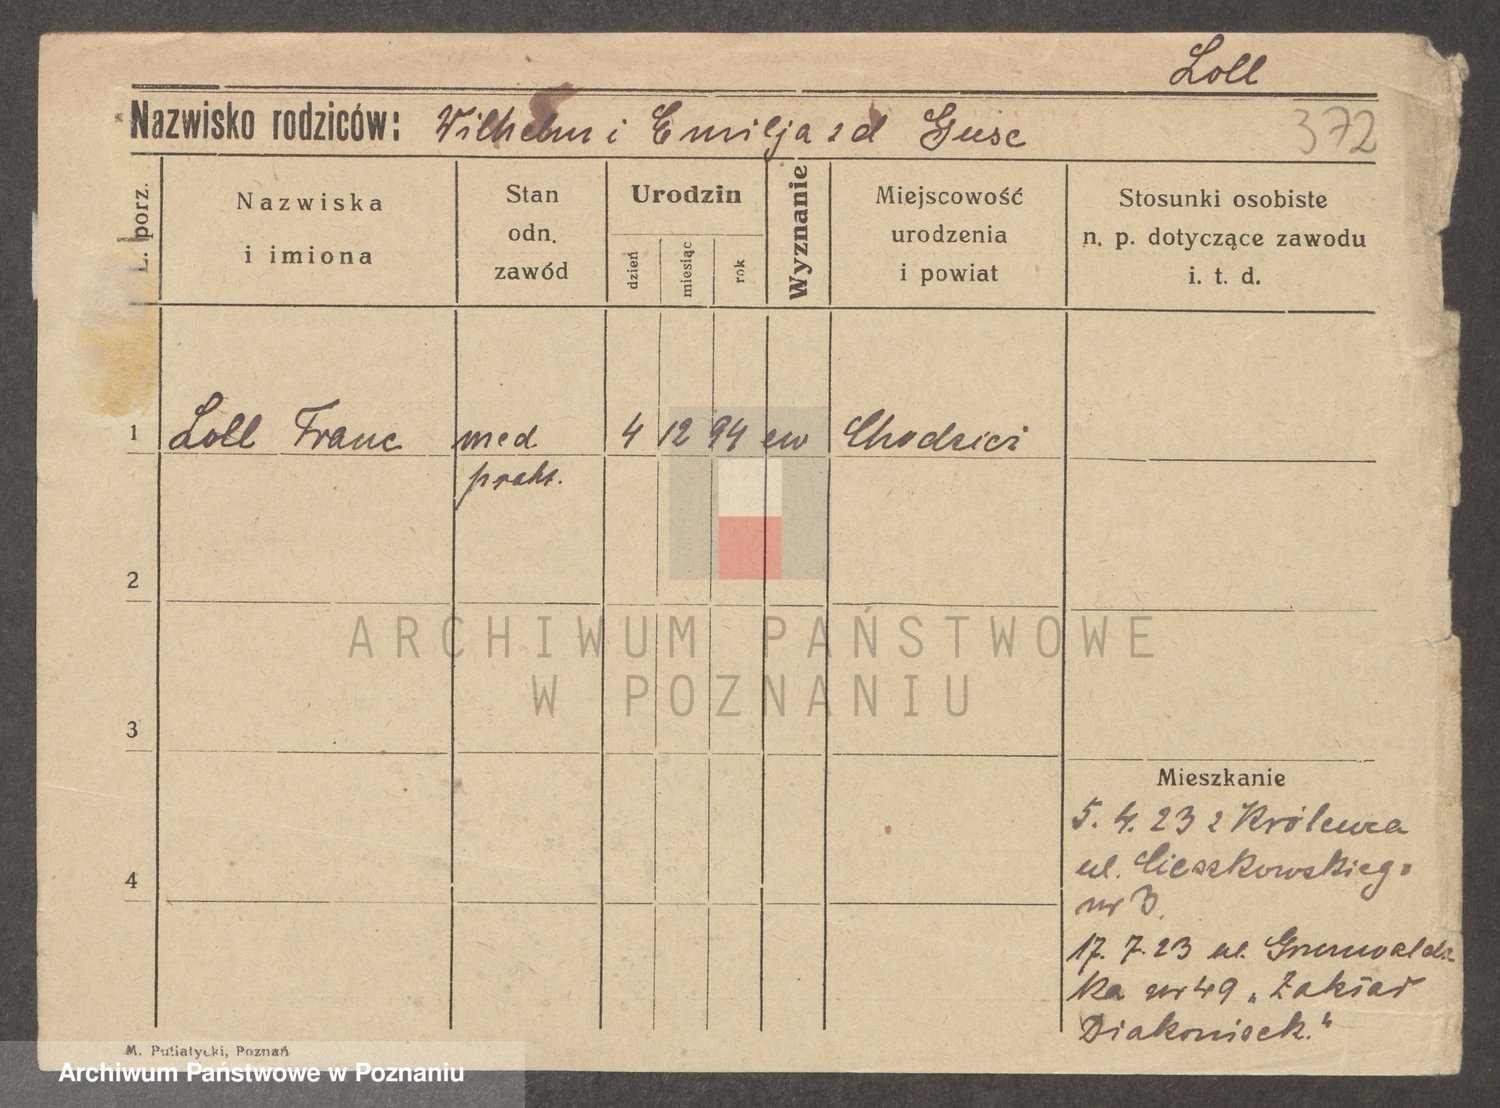 Loll
Nazwisko rodziców: Wilhelm i Emilja zd Guse
372
L. porz.
Nazwiska
i imiona
Stan
odn.
zawód
Urodzin
dzień
miesiąc
rok
Wyznanie
Miejscowość
urodzenia
i powiat
Stosunki osobiste
n. p. dotyczące zawodu
i. t. d.
1 Loll Franc med 4 12 94 ew Chodzież
prakt.
2
3
4
Mieszkanie
5. 4. 23 z Królewca
ul. Cieszkowskiego
nr 3.
17. 7. 23 ul. Grunwaldz-
ka nr 49 „Zakład
Diakonisek."
M. Putiatycki, Poznań
ARCHIWUM PAŃSTWOWE
W POZNANIU
Archiwum Państwowe w Poznaniu